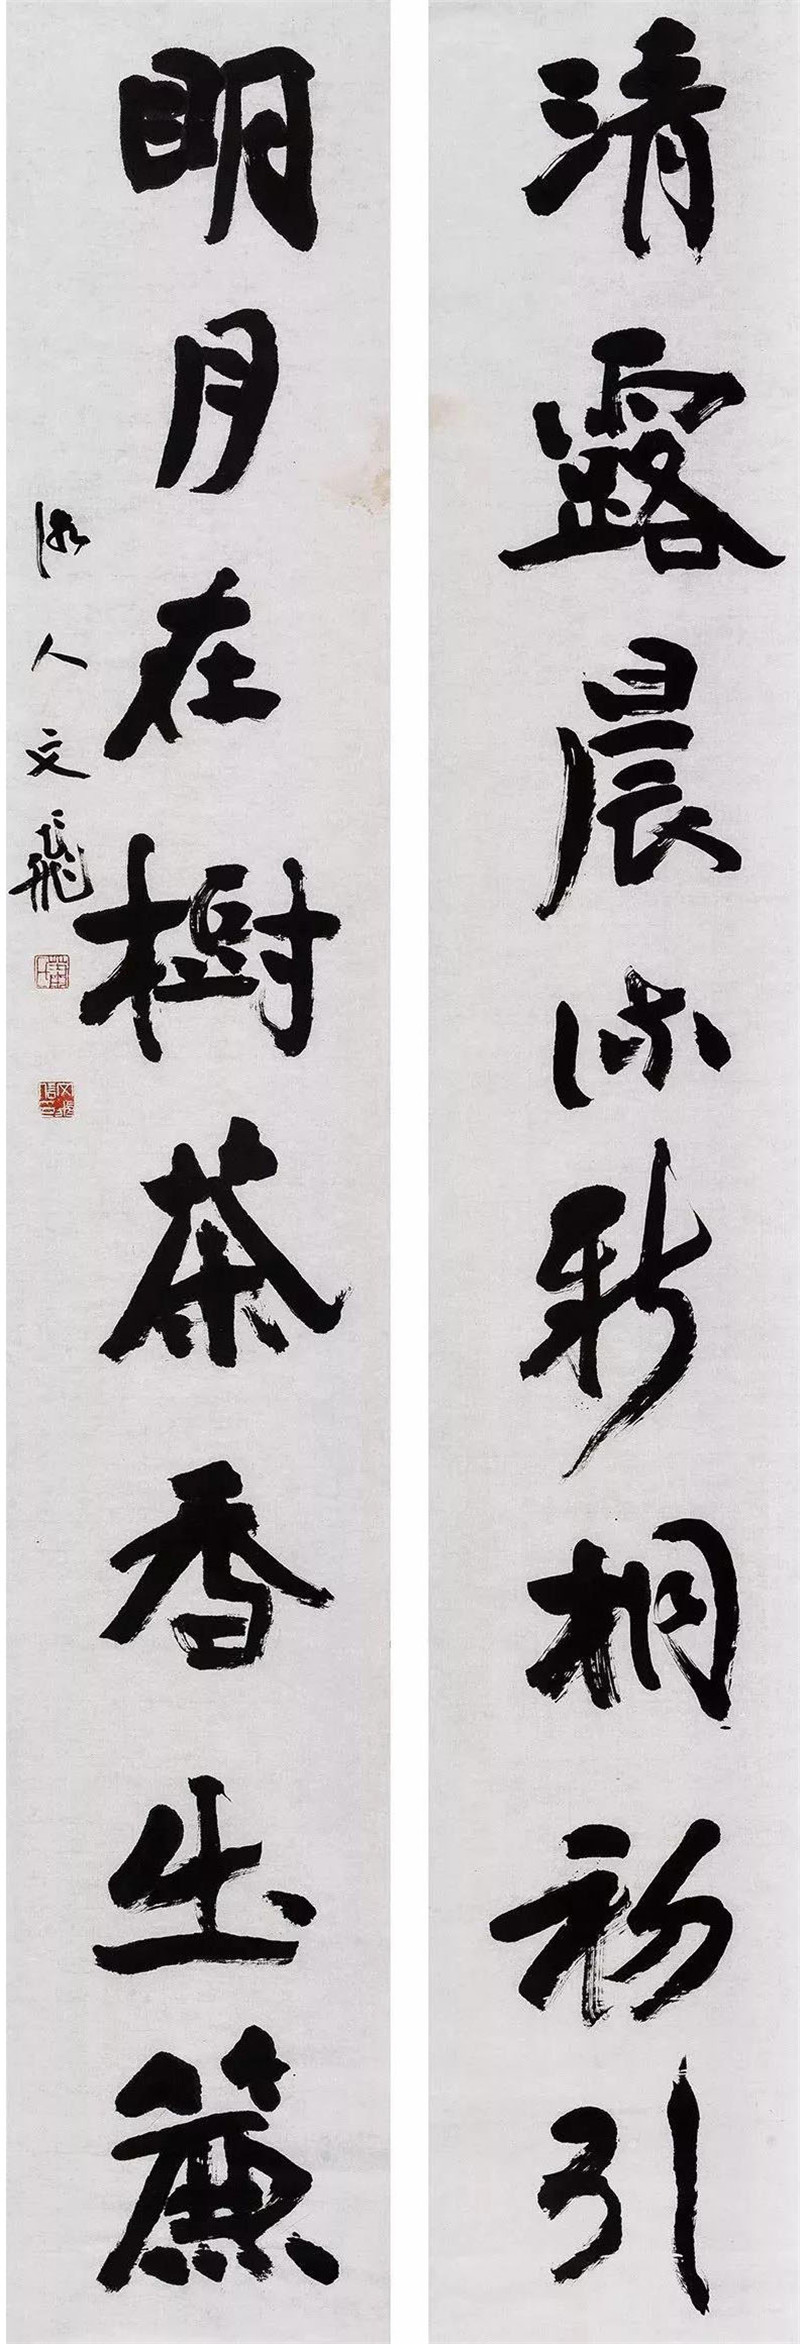 清露晨流新桐初引
明月在樹茶香出簾
湘人文飛